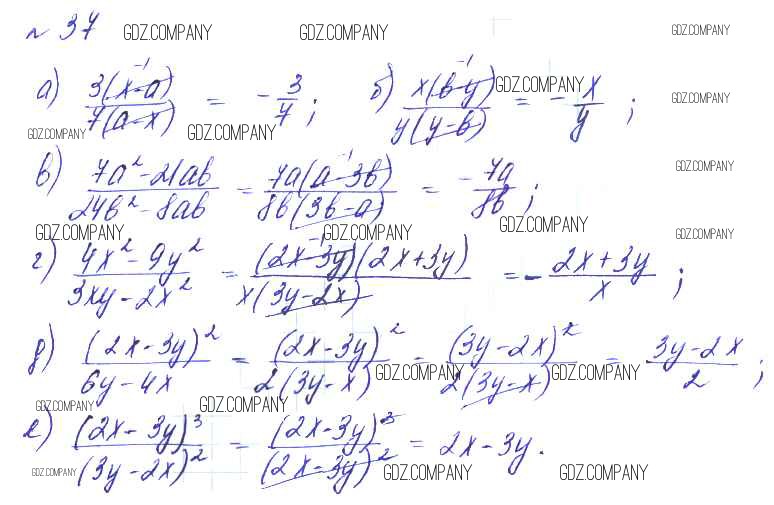 № 37 GDZ.COMPANY GDZ.COMPANY GDZ.COMPANY
а) 3(x-a)/7(a-x) = -3/7; б) x(b-y)/y(y-b) = -x/y; GDZ.COMPANY GDZ.COMPANY
GDZ.COMPANY GDZ.COMPANY
в) 7a²-21ab/24b²-8ab = 7a(a-3b)/8b(3b-a) = -7a/8b; GDZ.COMPANY
GDZ.COMPANY GDZ.COMPANY GDZ.COMPANY GDZ.COMPANY
г) 4x²-9y²/3xy-2x² = (2x-3y)(2x+3y)/x(3y-2x) = -2x+3y/x;
д) (2x-3y)²/6y-4x = (2x-3y)²/2(3y-x) = (3y-2x)²/2(3y-x) = 3y-2x/2; GDZ.COMPANY GDZ.COMPANY
GDZ.COMPANY GDZ.COMPANY
е) (2x-3y)³/(3y-2x)² = (2x-3y)³/(2x-3y)² = 2x-3y.
GDZ.COMPANY GDZ.COMPANY GDZ.COMPANY